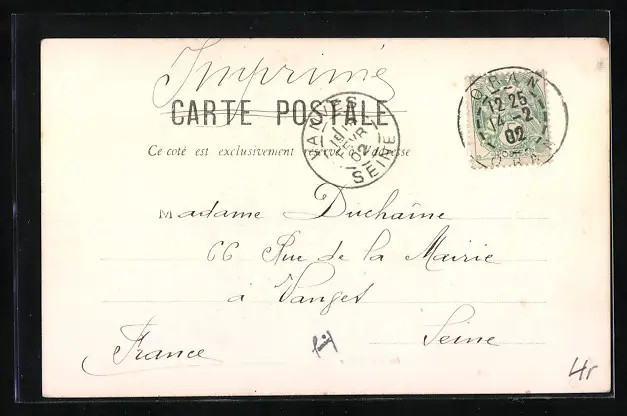 Imprimé
CARTE POSTALE
Ce côté est exclusivement réservé à l'adresse
VANVES
FEVR
02
SEINE
ORAN
12 25
14 - 2
02
ORAN
Madame Duchaîne
66 Rue de la Mairie
à Vanves
Seine
France